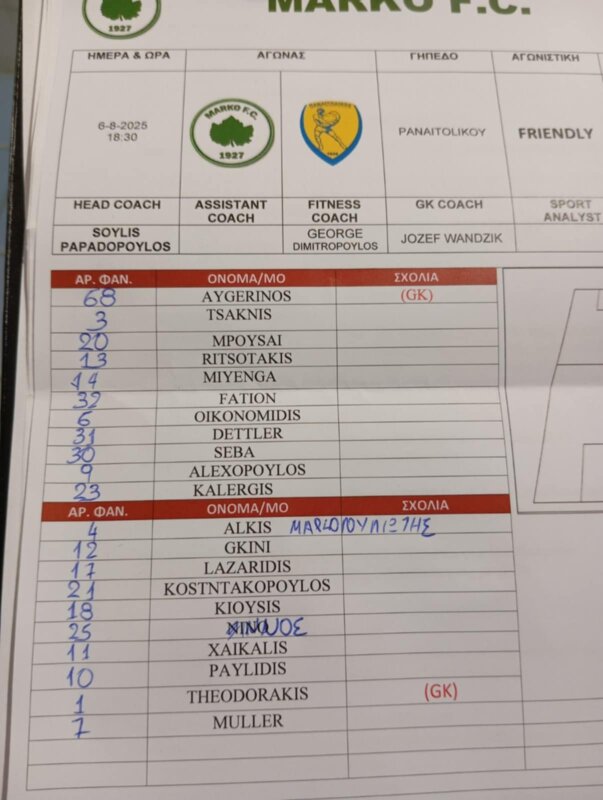 1927
MARKO F.C.
ΗΜΕΡΑ & ΩΡΑ ΑΓΩΝΑΣ ΓΗΠΕΔΟ ΑΓΩΝΙΣΤΙΚΗ
6-8-2025
18:30
MARKO F.C.
1927
PANAITOLIKOY
FRIENDLY
HEAD COACH ASSISTANT COACH FITNESS COACH GK COACH SPORT ANALYST
SOYLIS PAPADOPOYLOS GEORGE DIMITROPOYLOS JOZEF WANDZIK
ΑΡ. ΦΑΝ. ΟΝΟΜΑ/ΜΟ ΣΧΟΛΙΑ
68 AYGERINOS (GK)
3 TSAKNIS
20 MPOYSAI
13 RITSOTAKIS
14 MIYENGA
32 FATION
6 OIKONOMIDIS
31 DETTLER
30 SEBA
9 ALEXOPOYLOS
23 KALERGIS
ΑΡ. ΦΑΝ. ΟΝΟΜΑ/ΜΟ ΣΧΟΛΙΑ
4 ALKIS
12 GKINI
17 LAZARIDIS
21 KOSTNTAKOPOYLOS
18 KIOYSIS
25
11 XAIKALIS
10 PAYLIDIS
1 THEODORAKIS (GK)
7 MULLER